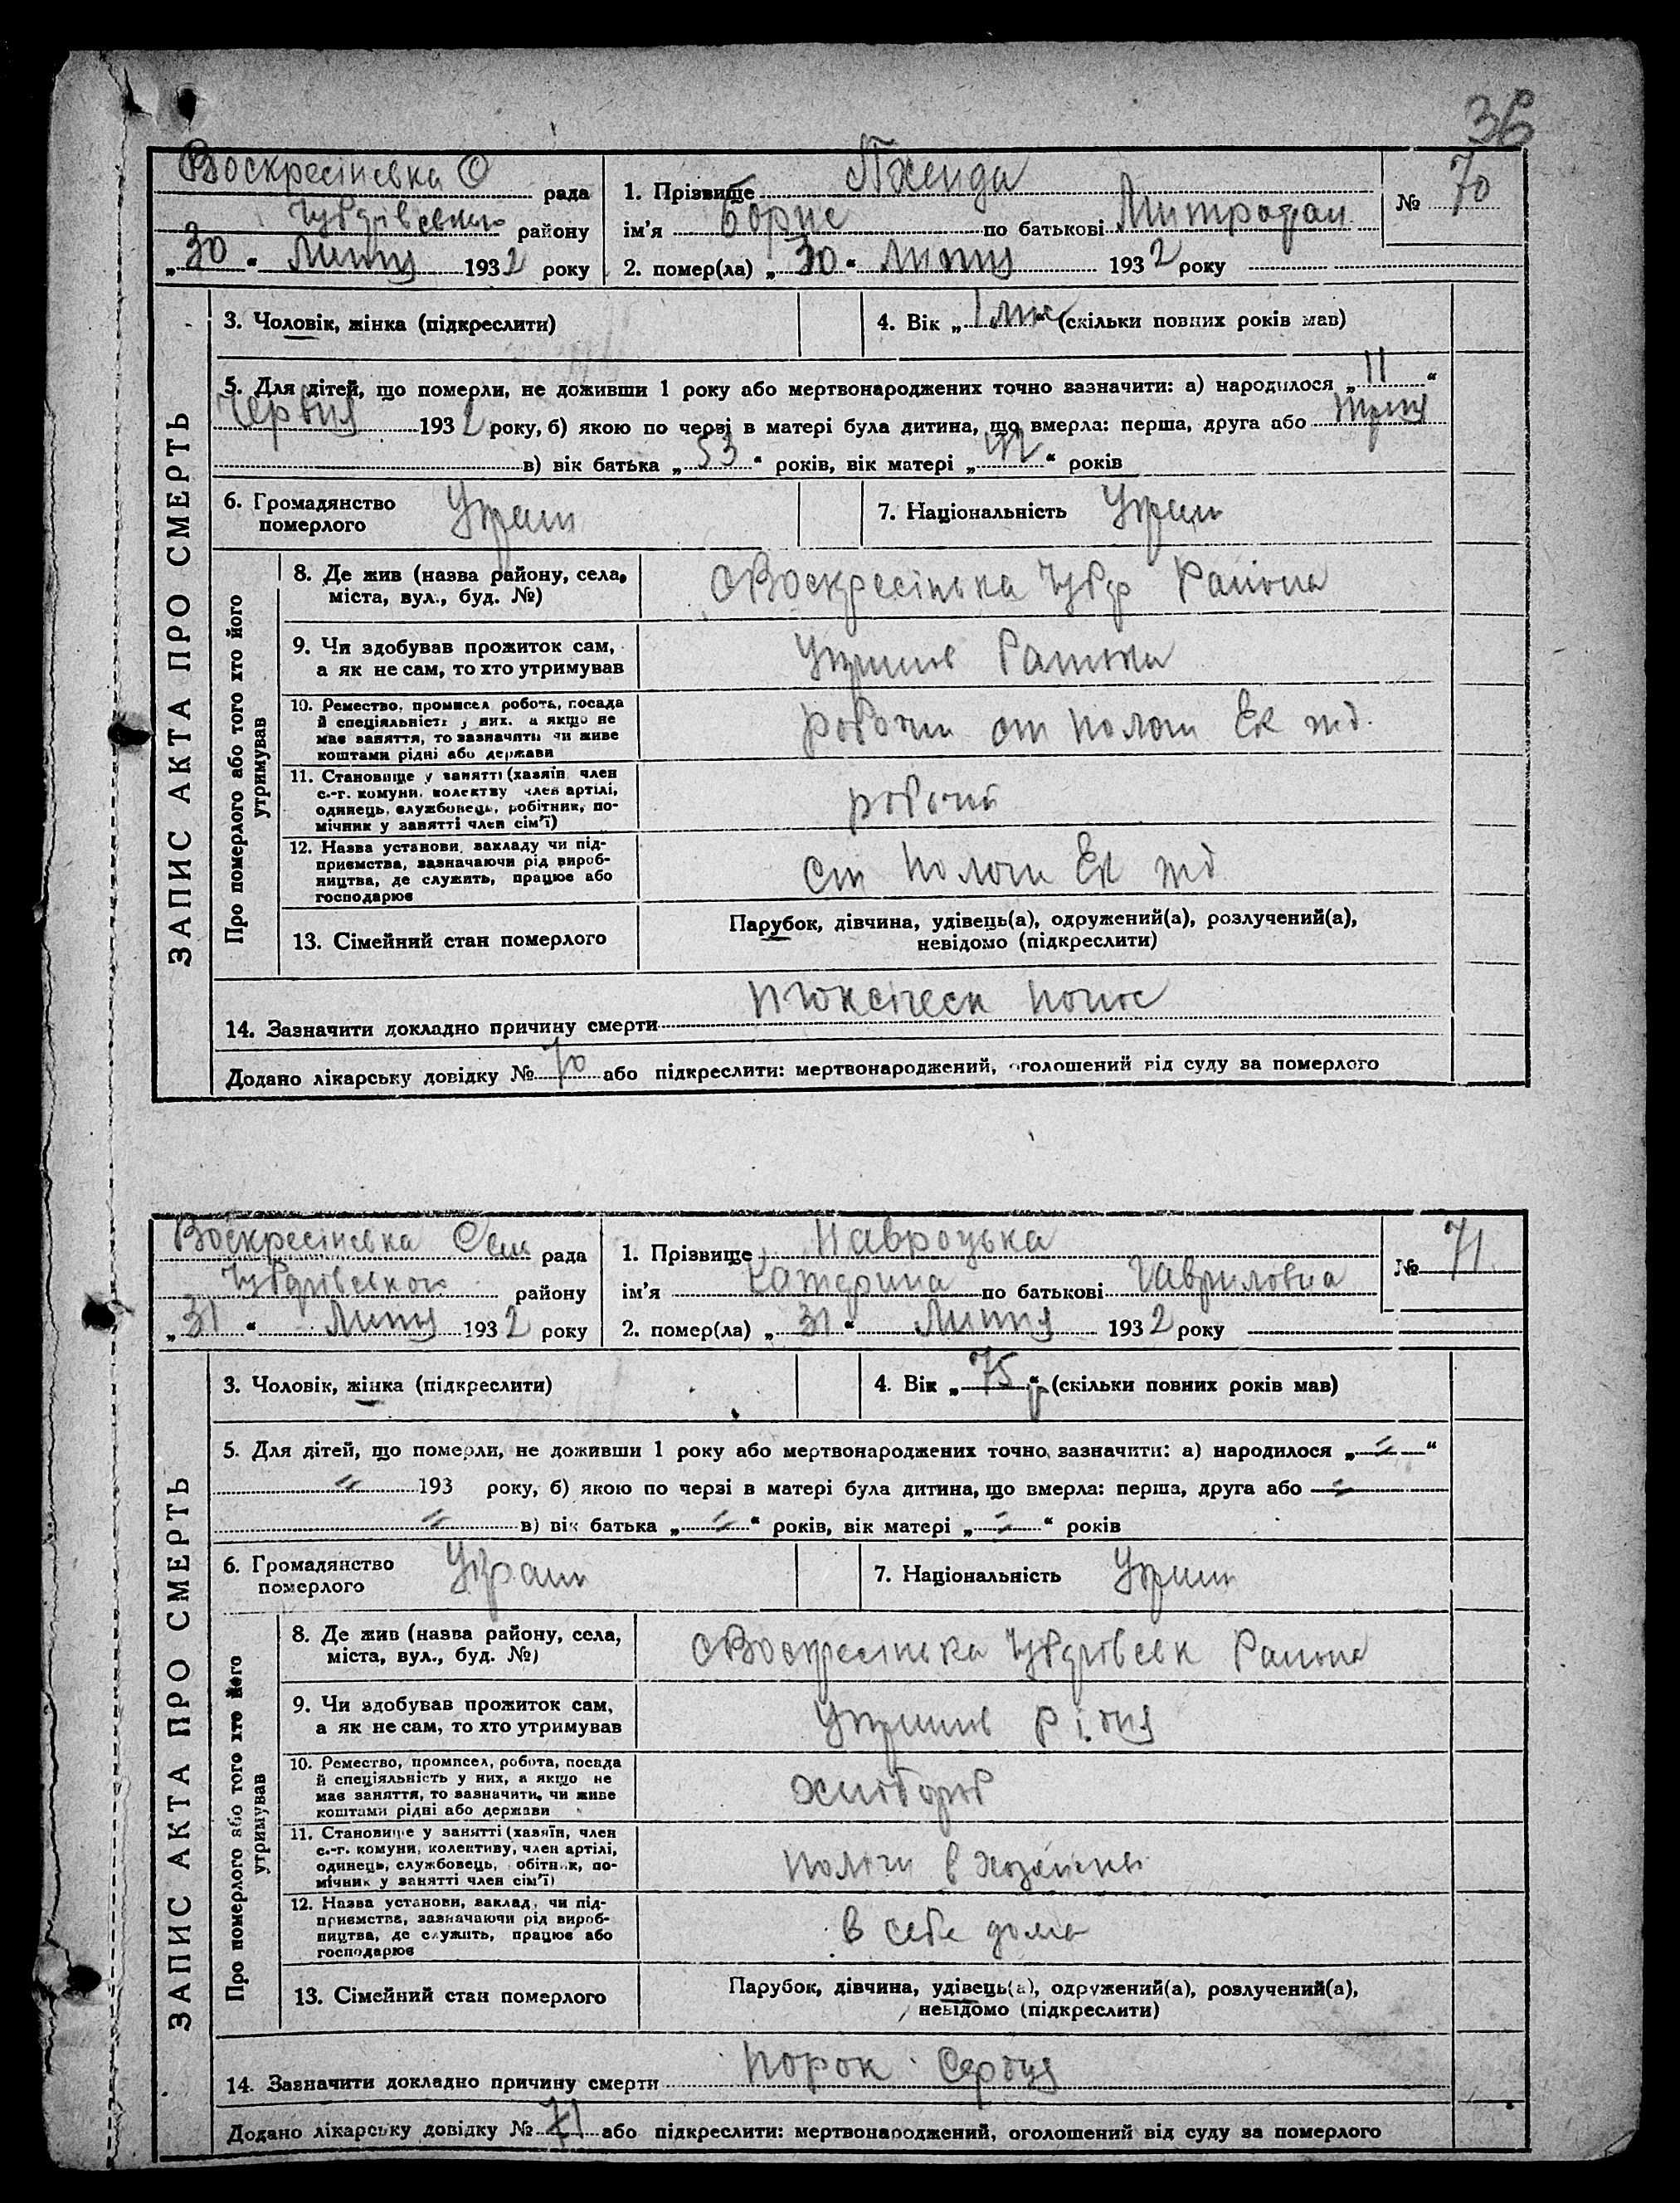 36
Воскресінська С рада
Чубарівського району
„30“ Липня 1932 року
1. Прізвище
ім'я Борис по батькові Митрофан
2. помер(ла) „30“ Липня 1932 року
№ 70
ЗАПИС АКТА ПРО СМЕРТЬ
3. Чоловік, жінка (підкреслити)
4. Вік „1 міс“ (скільки повних років мав)
5. Для дітей, що померли, не доживши 1 року або мертвонароджених точно зазначити: а) народилося „11“
Червня 1932 року, б) якою по черзі в матері була дитина, що вмерла: перша, друга або
в) вік батька „53“ років, вік матері „42“ років
6. Громадянство померлого Украін
7. Національність Украін
Про померлого або того хто його утримував
8. Де жив (назва району, села, міста, вул., буд. №)
С Воскресінька Чубар Района
9. Чи здобував прожиток сам, а як не сам, то хто утримував
10. Ремество, промисел, робота, посада й спеціяльність у них, а якщо не має заняття, то зазначити чи живе коштами рідні або держави
робочи ст Пологи Ек жд.
11. Становище у занятті (хазяїн, член с.-г. комуни, колективу, член артілі, одинець, службовець, робітник, помічник у занятті член сім'ї)
робочий
12. Назва установи, закладу чи підприємства, зазначаючи рід виробництва, де служить, працює або господарює
Ст Пологи Ек жд
13. Сімейний стан померлого
Парубок, дівчина, удівець(а), одружений(а), розлучений(а),
невідомо (підкреслити)
14. Зазначити докладно причину смерти понос
Додано лікарську довідку № 70 або підкреслити: мертвонароджений, оголошений від суду за померлого
Воскресінська Сель рада
Чубарівського району
„31“ Липня 1932 року
1. Прізвище Навроцька
ім'я Катерина по батькові Гавриловна
2. помер(ла) „31“ Липня 1932 року
№ 71
ЗАПИС АКТА ПРО СМЕРТЬ
3. Чоловік, жінка (підкреслити)
4. Вік „75“ р (скільки повних років мав)
5. Для дітей, що померли, не доживши 1 року або мертвонароджених точно зазначити: а) народилося „=“
= 193 року, б) якою по черзі в матері була дитина, що вмерла: перша, друга або =
= в) вік батька „=“ років, вік матері „=“ років
6. Громадянство померлого Украін
7. Національність Украін
Про померлого або того хто його утримував
8. Де жив (назва району, села, міста, вул., буд. №)
С Воскресінька Чубарівськ Района
9. Чи здобував прожиток сам, а як не сам, то хто утримував
Утримув рідня
10. Ремество, промисел, робота, посада й спеціяльність у них, а якщо не має заняття, то зазначити, чи живе коштами рідні або держави
Хлібороб
11. Становище у занятті (хазяїн, член с.-г. комуни, колективу, член артілі, одинець, службовець, робітник, помічник у занятті член сім'ї)
12. Назва установи, заклад, чи підприємства, зазначаючи рід виробництва, де служить, працює або господарює
В себе дома
13. Сімейний стан померлого
Парубок, дівчина, удівець(а), одружений(а), розлучений(а),
невідомо (підкреслити)
14. Зазначити докладно причину смерти Порок Сердця
Додано лікарську довідку № 71 або підкреслити: мертвонароджений, оголошений від суду за померлого